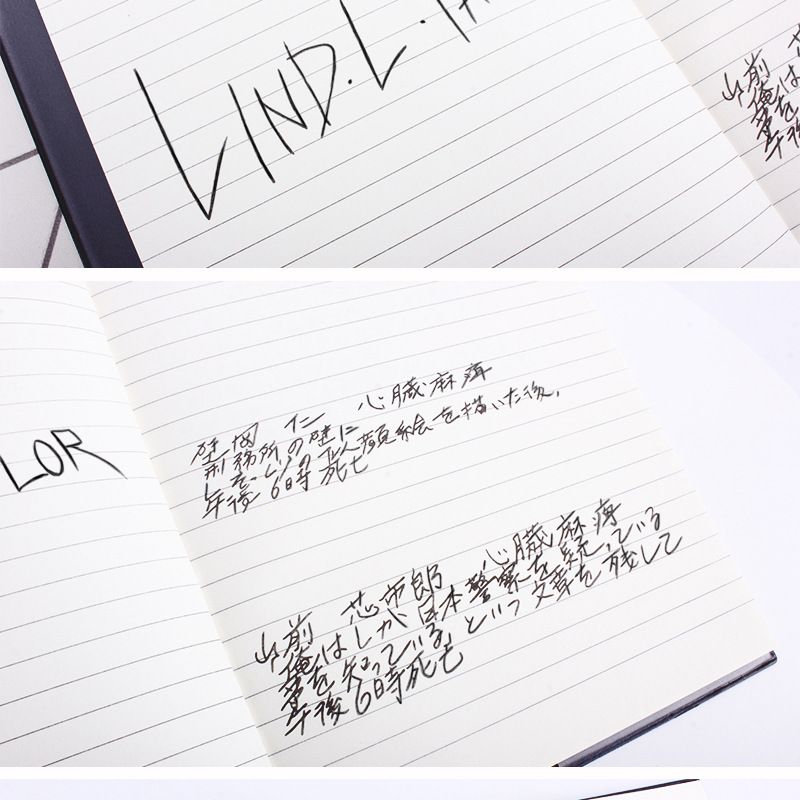 LIND.L.TA
山前 芯
俺は
事を
午後
LOR
仁 心臓麻痺
刑務所の壁に
顔絵を描いた後、
午後6時死亡
山前 芯市郎 心臓麻痺
俺はLが日本警察を疑っている
事を知っている、という文章を残して
午後6時死亡